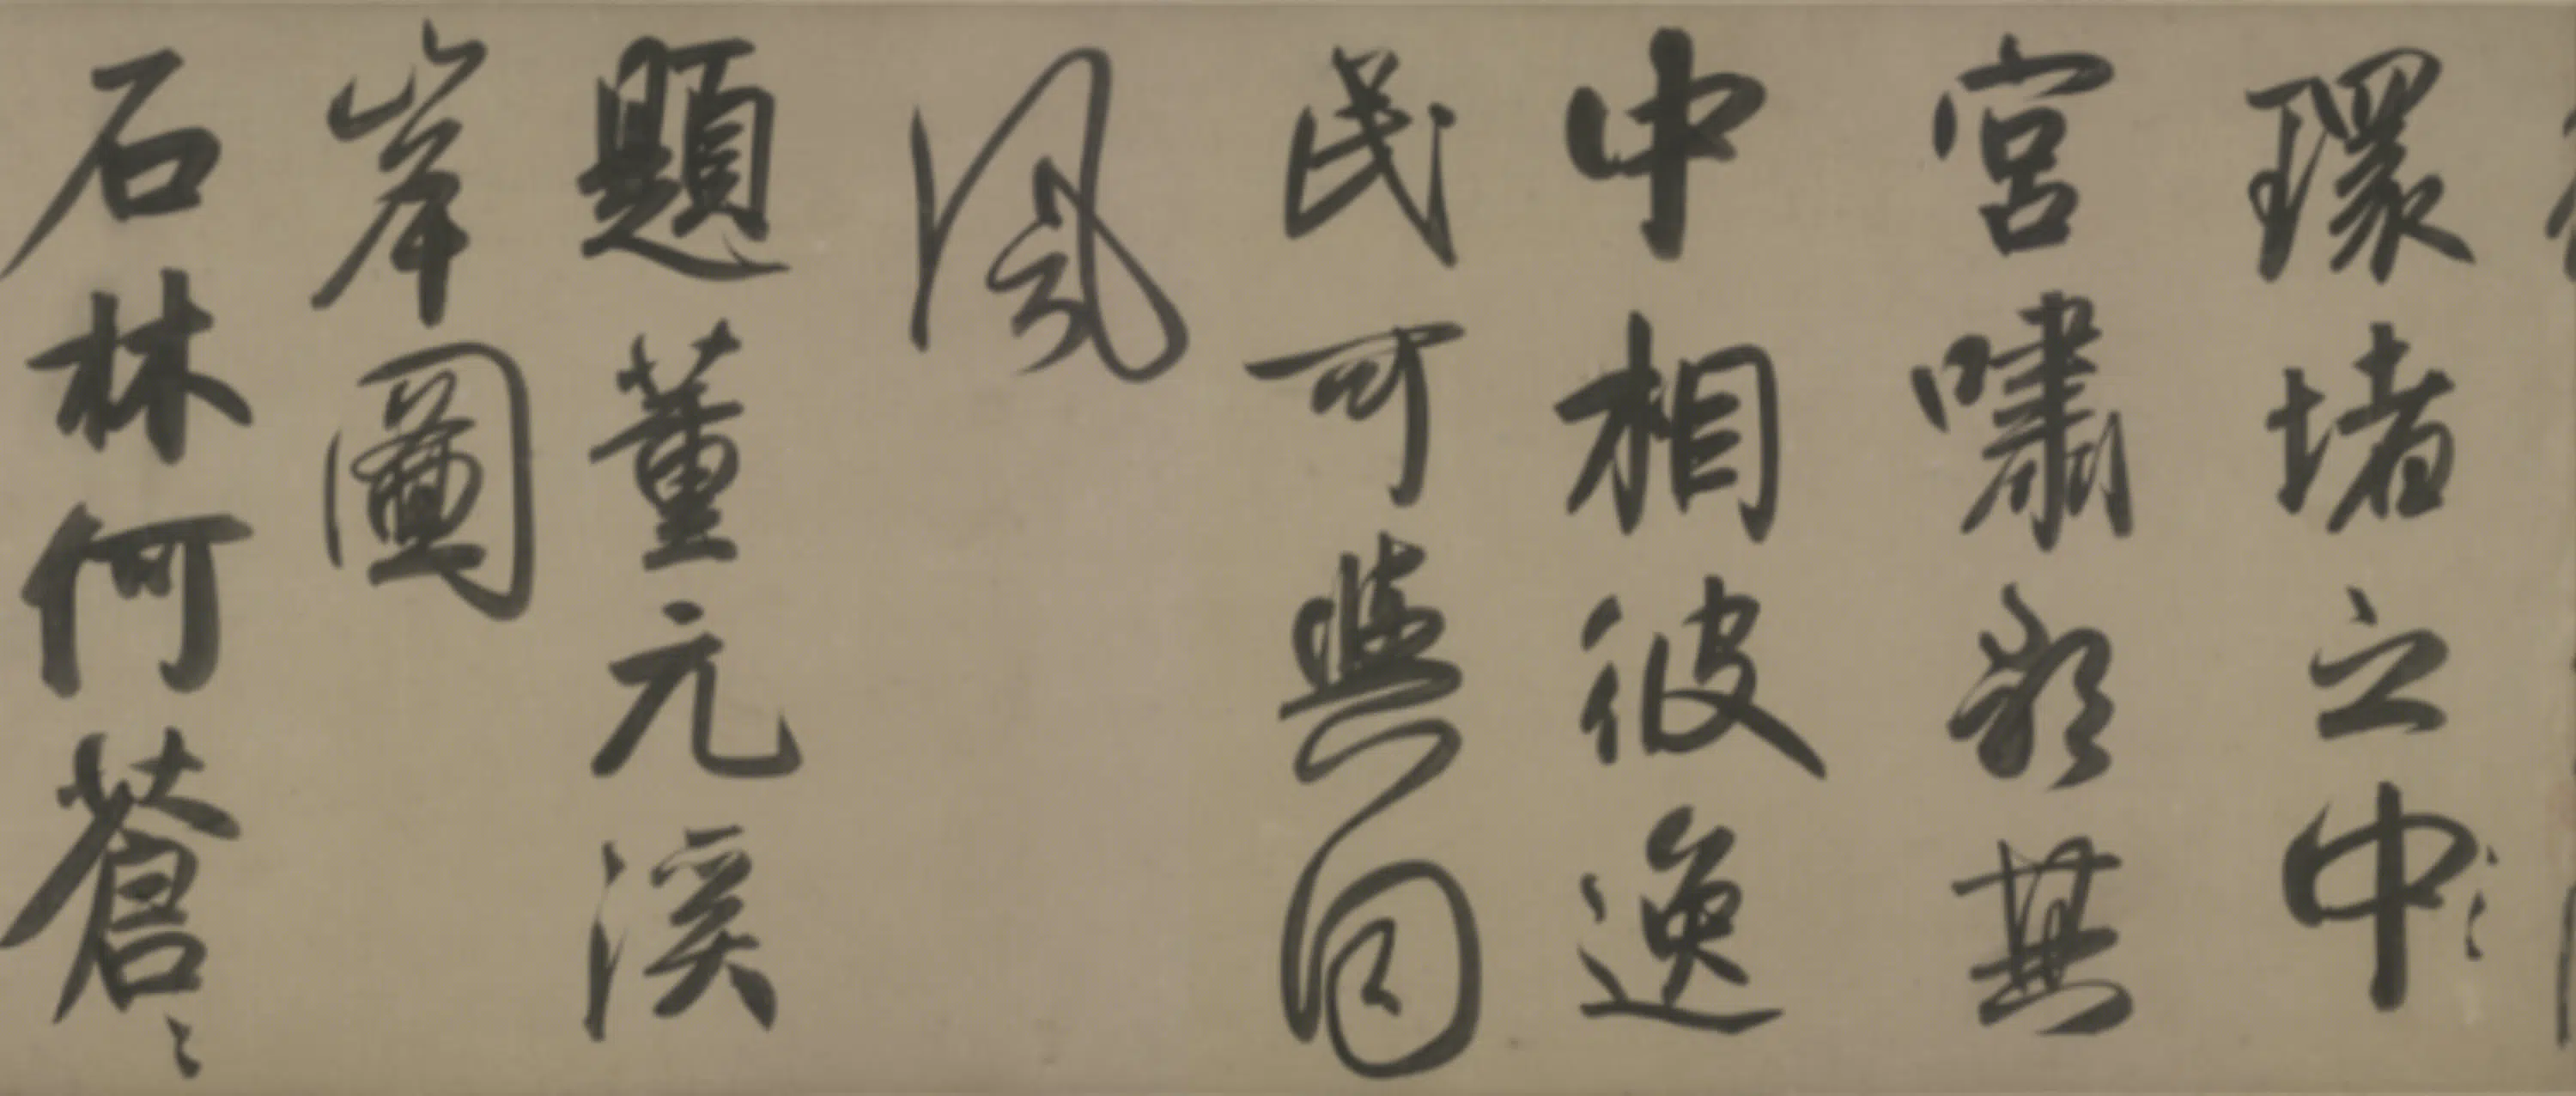 環堵之中
宮嘯歌其
中相彼逸
民可與同
風
題董元溪
岸圖
石林何蒼〻